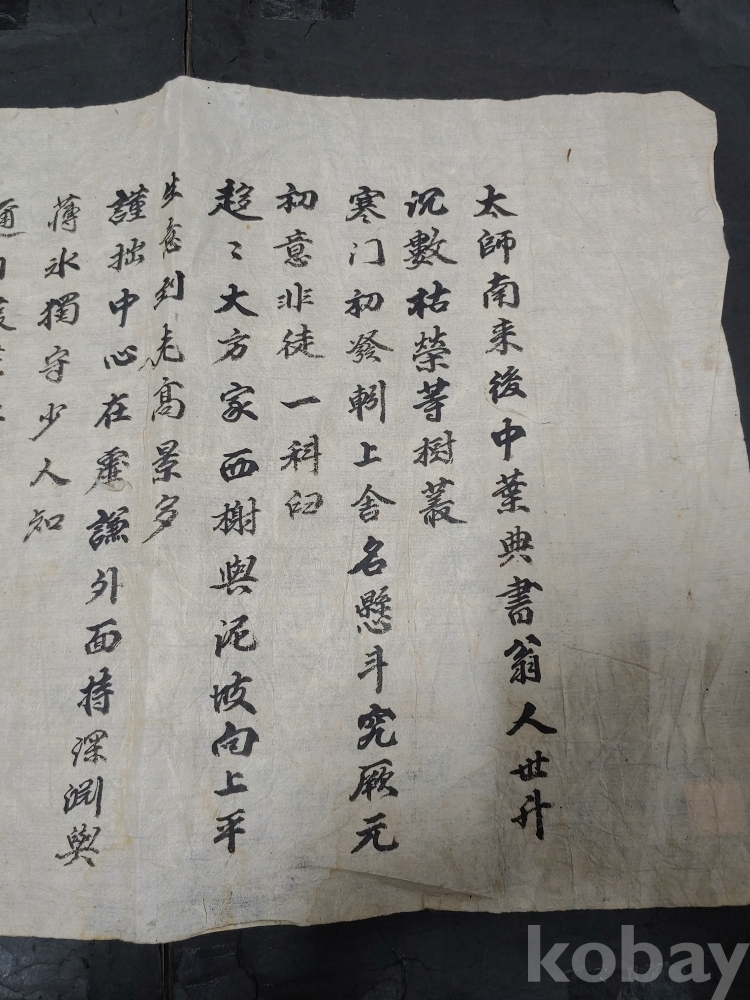 太師南来後中葉典書翁人世升
沉數枯榮等樹叢
寒门初發軔上舍名懸斗究厥元
初意非徒一科臼
趍〻大方家西榭與泥坡向上平
生意到老高景多
謹拙中心在 謙外面持深淵與
薄氷獨守少人知
kobay